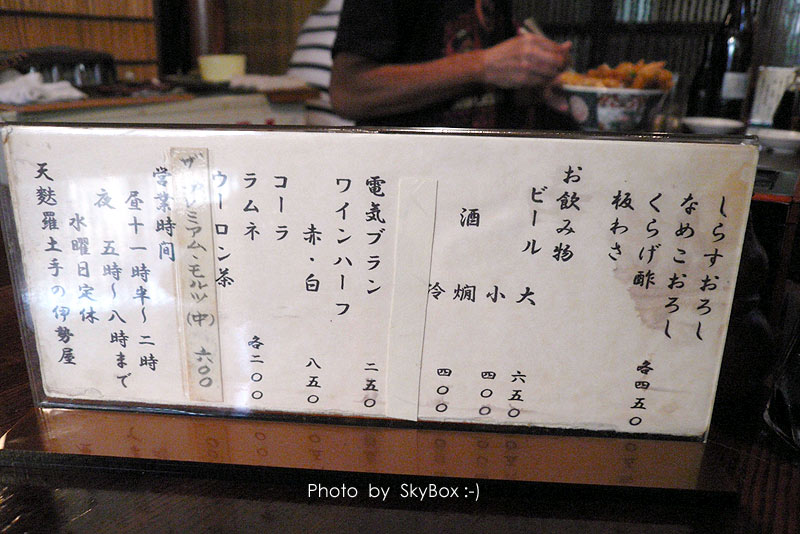 しらすおろし
なめこおろし
くらげ酢
板わさ 各四五〇
お飲み物
ビール 大 六五〇
小 四〇〇
酒 燗
冷 四〇〇
電気ブラン 二五〇
ワインハーフ
赤・白 八五〇
コーラ
ラムネ 各二〇〇
ウーロン茶
ザ・プレミアム・モルツ(中) 六〇〇
営業時間
昼十一時半〜二時
夜 五時〜八時まで
水曜日定休
天麩羅土手の伊勢屋
Photo by SkyBox :-)